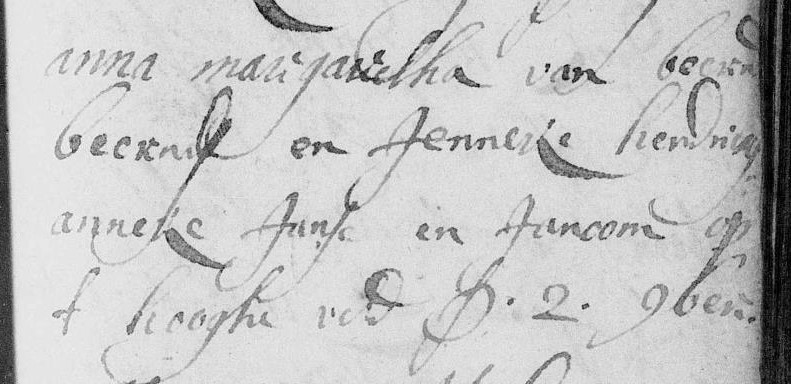 anna margaretha van beernd
beernds en Jenneke hendrix
anneke Janse en Jan oom op
t hooghe veld D. 2. 9bem.